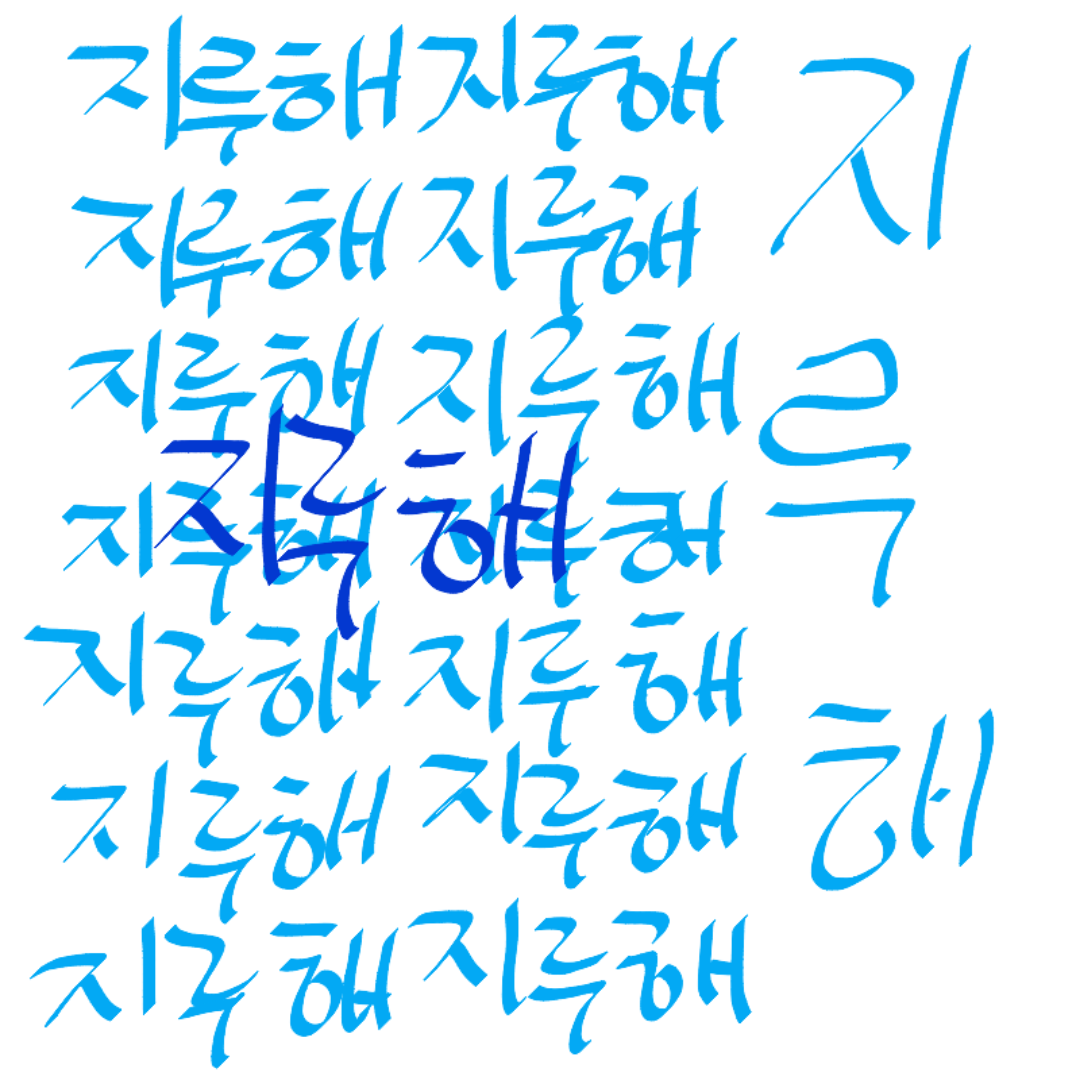 지루해 지루해
지루해 지루해
지루해 지루해
지루해
지루해 지루해
지루해 지루해
지루해 지루해
지루해 지루해
지
루
해